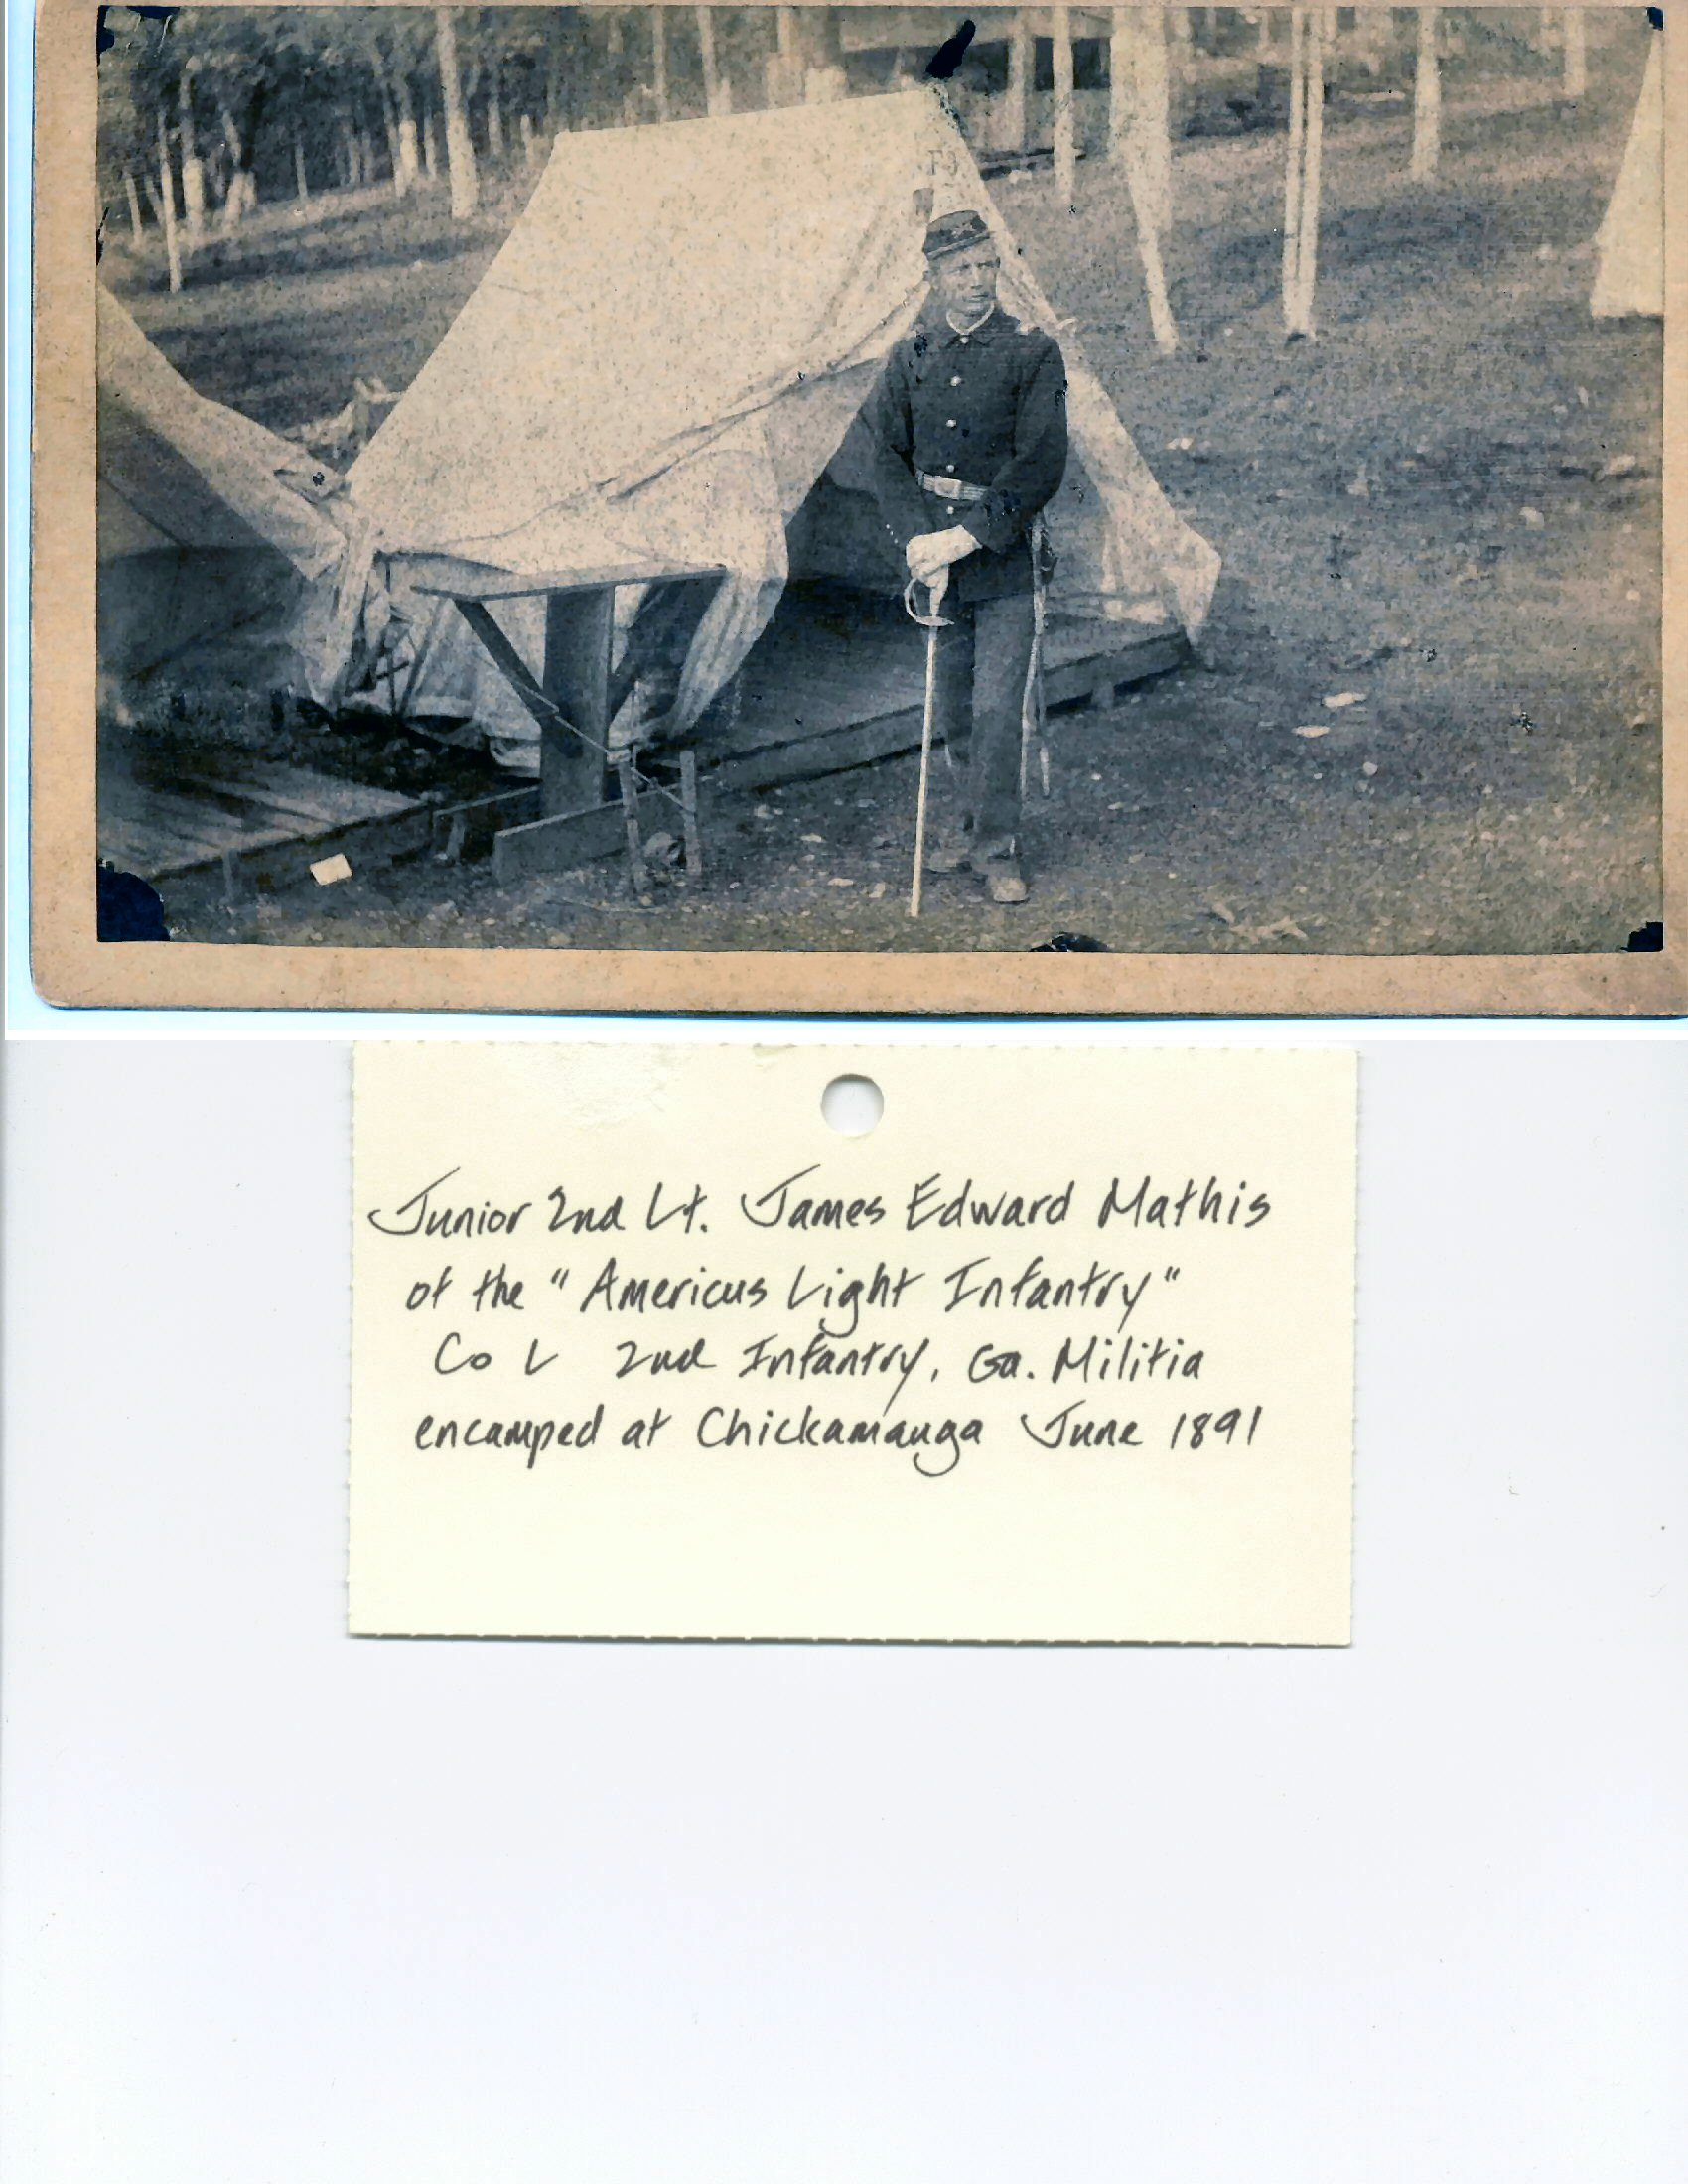 Junior 2nd Lt. James Edward Mathis
of the "Americus Light Infantry"
Co L 2nd Infantry, Ga. Militia
encamped at Chickamauga June 1891